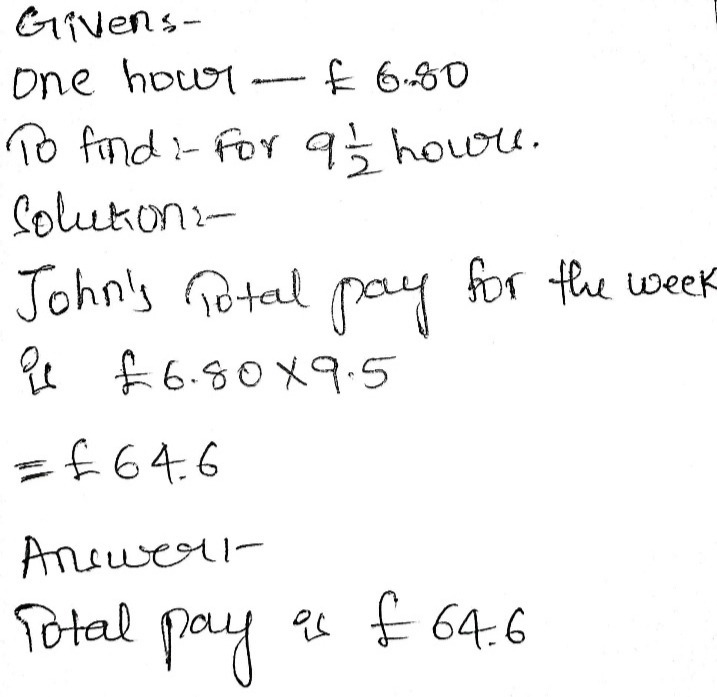 Givens-
One hour — £ 6.80
To find :- For 9 1/2 hours.
Solution:-
John's Total pay for the week
is £6.80 X 9.5
= £64.6
Answer:-
Total pay is £ 64.6